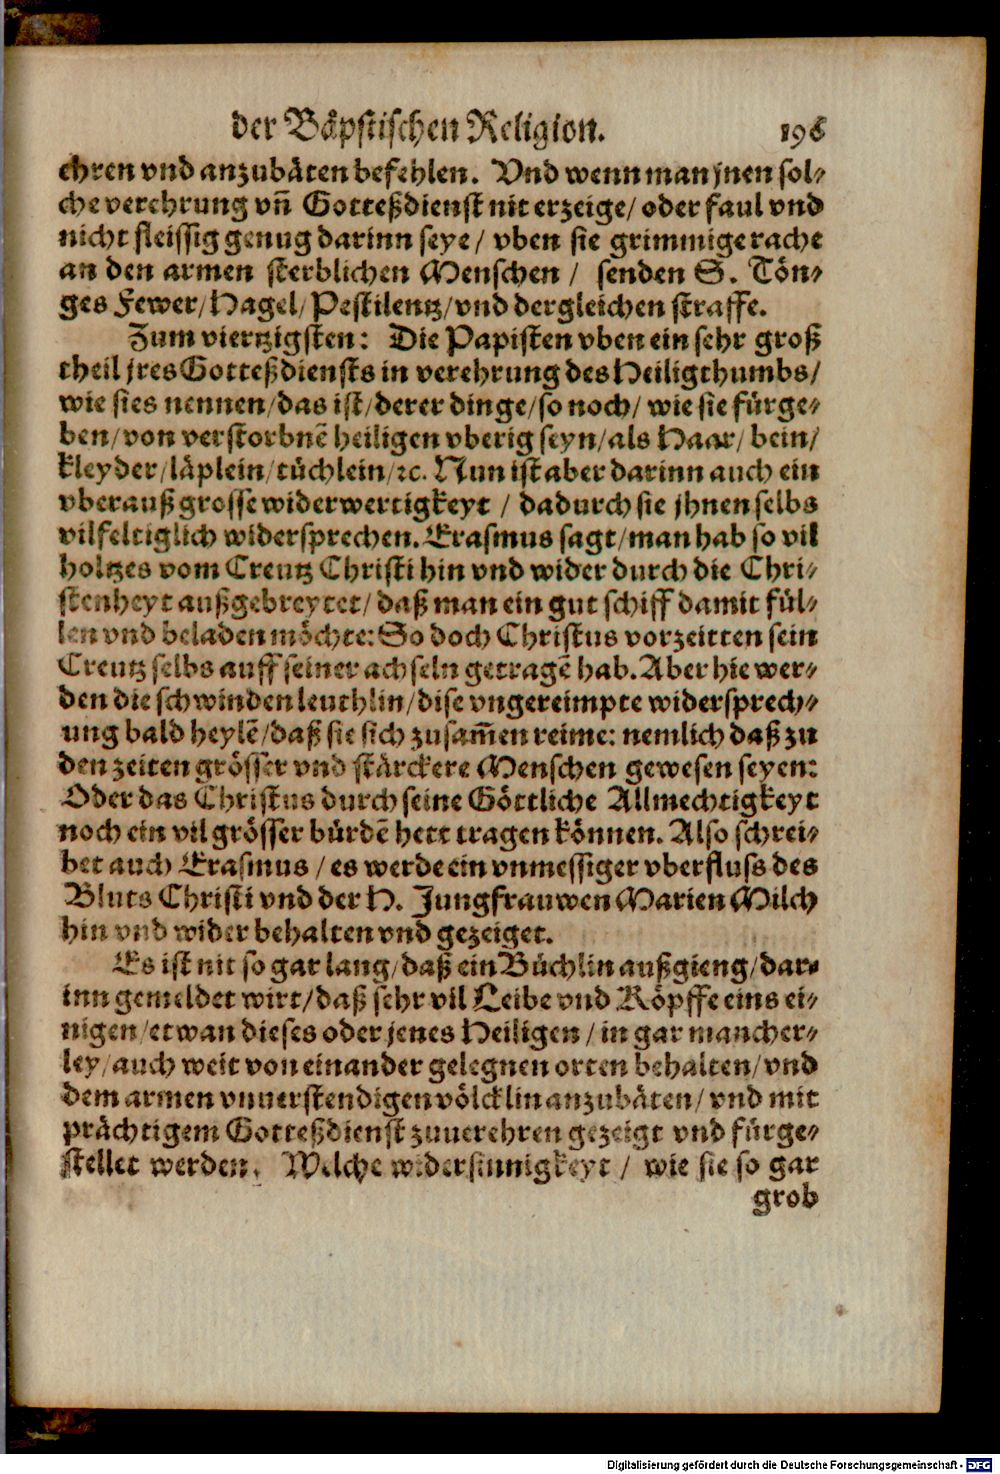 der Bäpstischen Religion. 196
ehren vnd anzubäten befehlen. Vnd wenn man jnen sol⸗
che verehrung vñ Gotteßdienst nit erzeige/ oder faul vnd
nicht fleissig genug darinn seye/ vben sie grimmige rache
an den armen sterblichen Menschen/ senden S. Tön⸗
ges Fewer/ Hagel/ Pestilentz/ vnd dergleichen straffe.
Zum viertzigsten: Die Papisten vben ein sehr groß
theil jres Gotteßdiensts in verehrung des Heiligthumbs/
wie sies nennen/ das ist/ derer dinge/ so noch/ wie sie fürge⸗
ben/ von verstorbnē heiligen vberig seyn/ als Haar/ bein/
kleyder/ läplein/ tüchlein/ ꝛc. Nun ist aber darinn auch ein
vberauß grosse widerwertigkeyt/ dadurch sie jhnen selbs
vilfeltiglich widersprechen. Erasmus sagt/ man hab so vil
holtzes vom Creutz Christi hin vnd wider durch die Chri⸗
stenheyt außgebreytet/ daß man ein gut schiff damit fül⸗
len vnd beladen möchte: So doch Christus vorzeitten sein
Creutz selbs auff seiner achseln getragē hab. Aber hie wer⸗
den die schwinden leuthlin/ dise vngereimpte widersprech⸗
ung bald heylē/ daß sie sich zusam̄en reime: nemlich daß zu
den zeiten grösser vnd stärckere Menschen gewesen seyen:
Oder das Christus durch seine Göttliche Allmechtigkeyt
noch ein vil grösser bürdē hett tragen können. Also schrei⸗
bet auch Erasmus/ es werde ein vnmessiger vberfluss des
Bluts Christi vnd der H. Jungfrauwen Marien Milch
hin vnd wider behalten vnd gezeiget.
Es ist nit so gar lang/ daß ein Büchlin außgieng/ dar⸗
inn gemeldet wirt/ daß sehr vil Leibe vnd Köpffe eins ei⸗
nigen/ etwan dieses oder jenes Heiligen/ in gar mancher⸗
ley/ auch weit von einander gelegnen orten behalten/ vnd
dem armen vnuerstendigen völcklin anzubäten/ vnd mit
prächtigem Gotteßdienst zuuerehren gezeigt vnd fürge⸗
stellet werden. Welche widersinnigkeyt/ wie sie so gar
grob
Digitalisierung gefördert durch die Deutsche Forschungsgemeinschaft - DFG